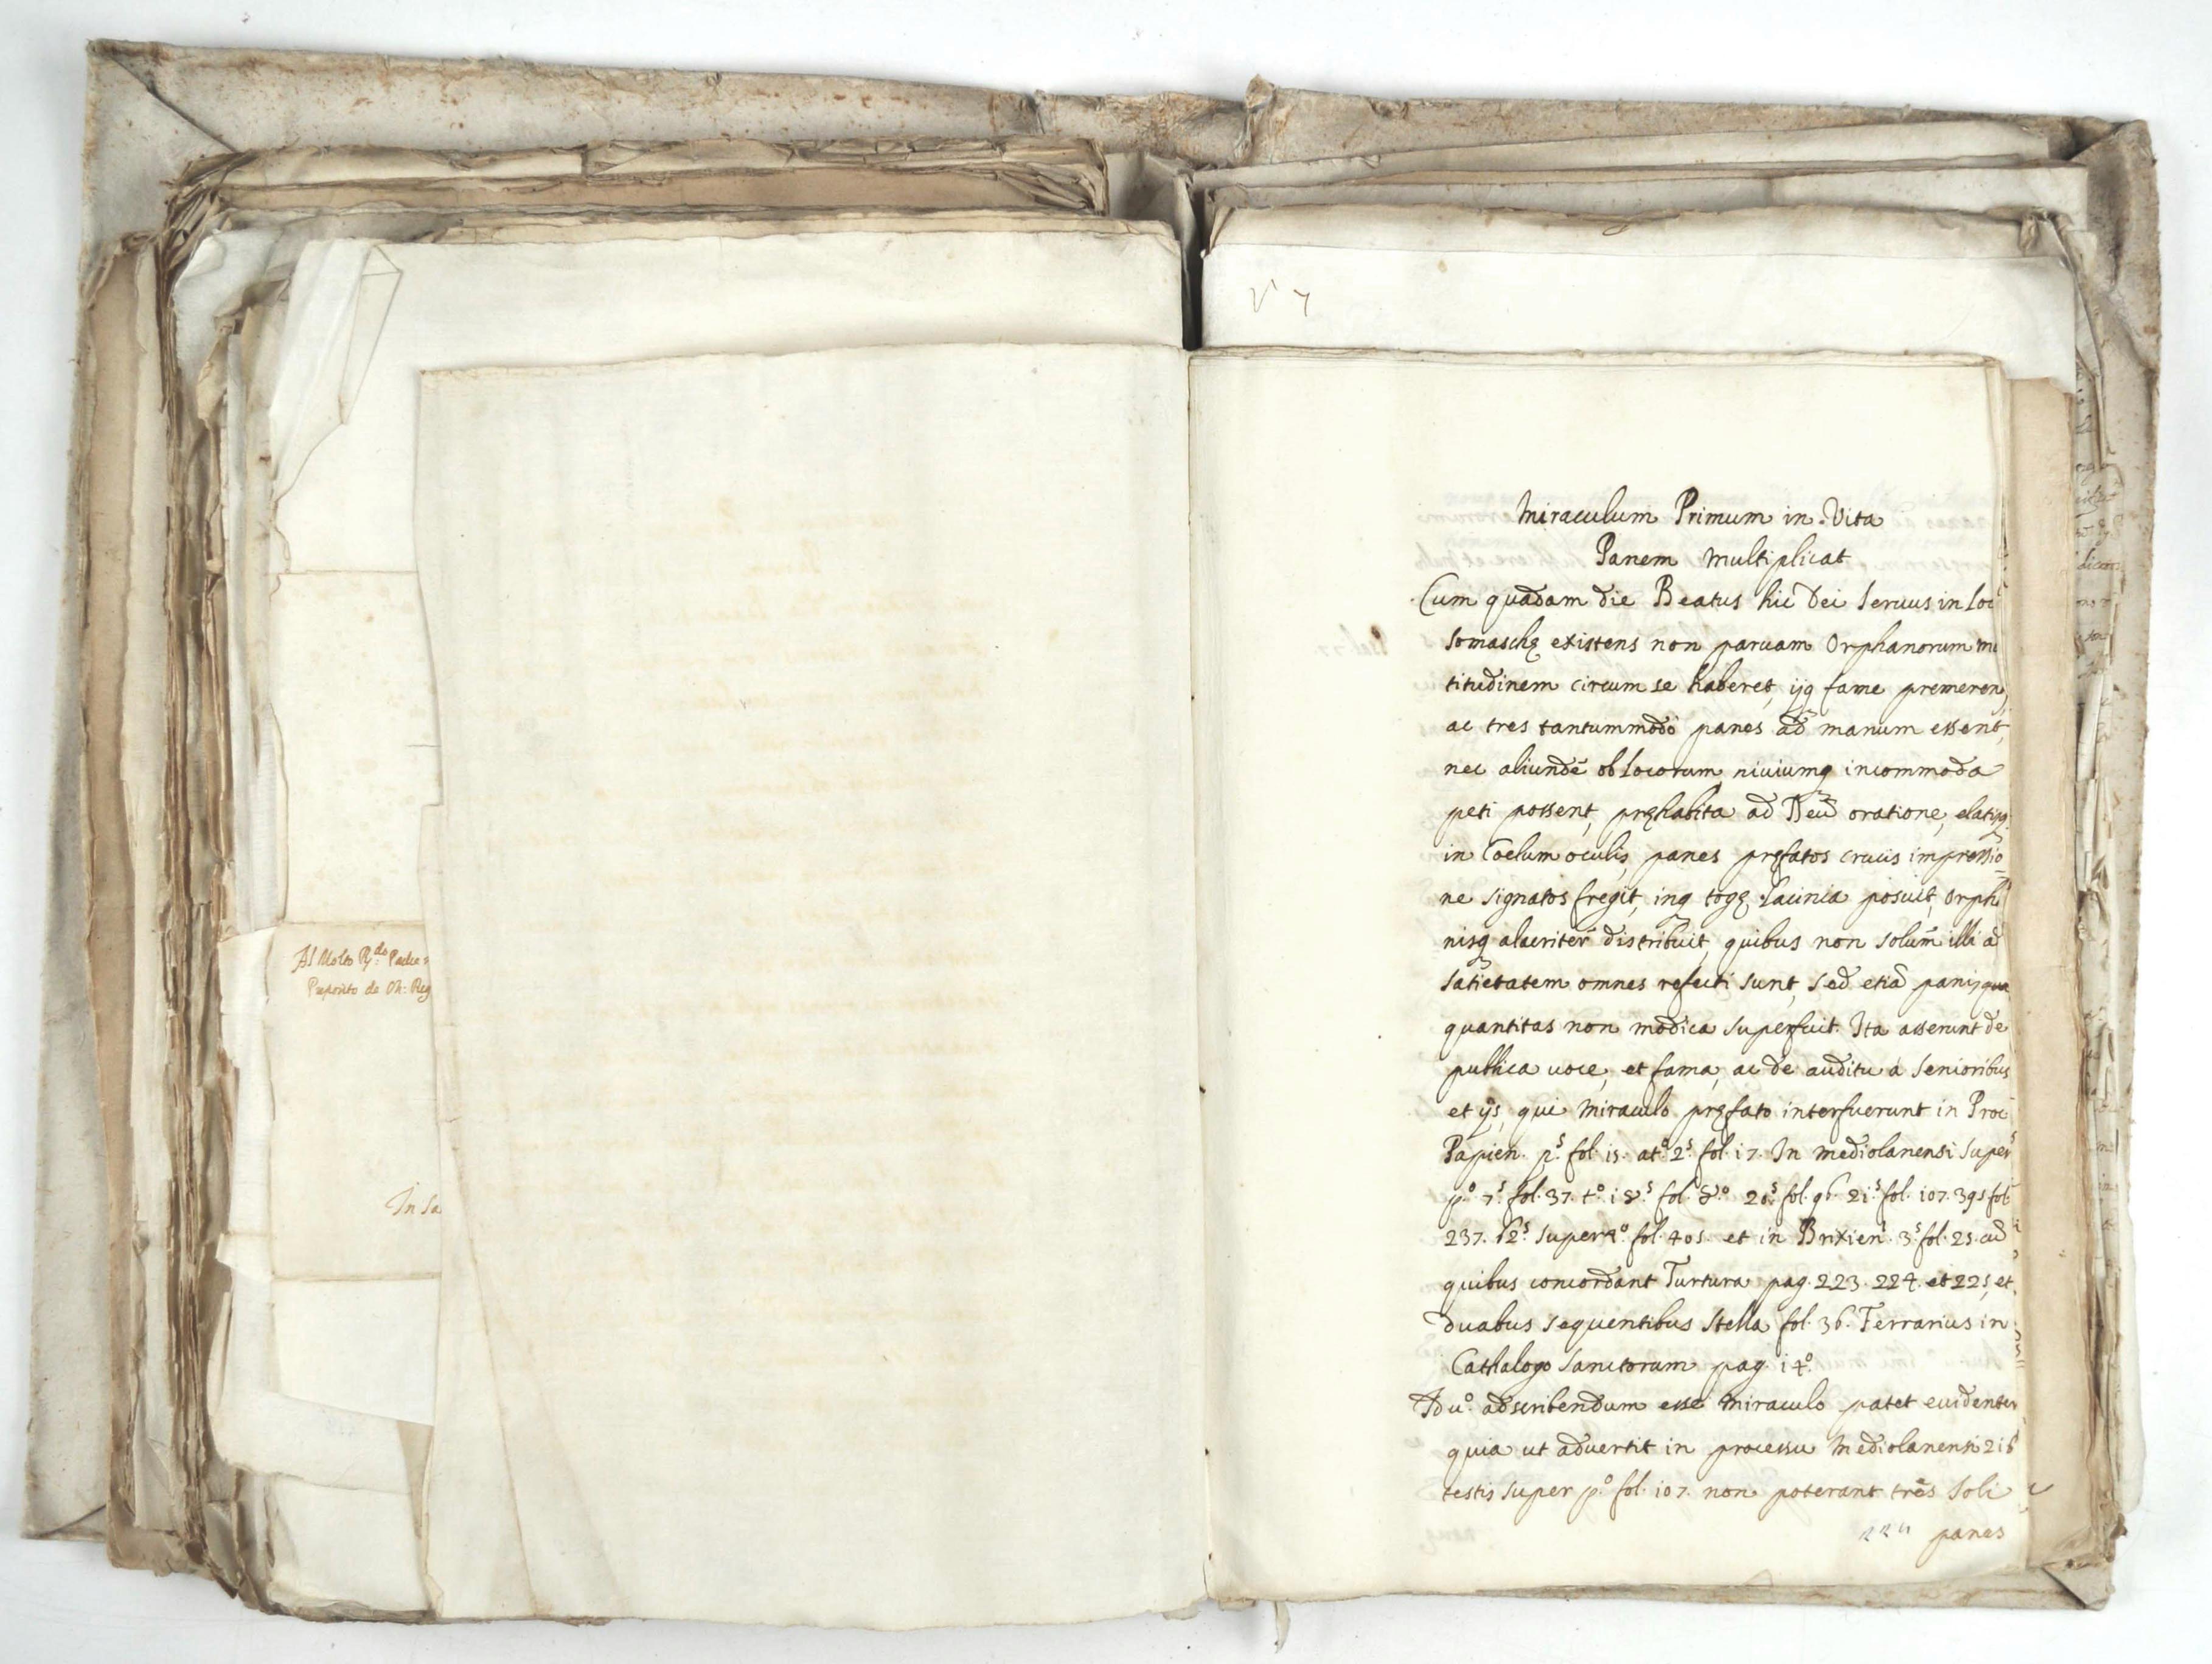 Al Molto R.do Padre
Preposito de Ch: Reg
In Sa
Miraculum Primum in Vita
Panem multiplicat
Cum quadam die Beatus hic Dei Seruus in Loc
Somaschę existens non paruam Orphanorum mu
titudinem circum se haberet, ijq fame premeren
ac tres tantummodò panes ad manum essent,
nec aliundè ob Locorum, niuiumq incommoda
peti possent, pręhabita ad Deũ oratione, elatisq.
in Coelum oculis, panes pręfatos crucis impressio=
ne signatos fregit, inq togę lacinia posuit, Orpha
nisq alacriter distribuit, quibus non solùm illi ad
satietatem omnes refecti sunt, sed etiã panis
quantitas non modica superfuit. Ita asserunt de
publica uoce, et fama, ac de auditu à Senioribus
et ijs, qui miraculo pręfato interfuerunt in Proc
Papien. p.s fol. 15. at.o 2.s fol. 17. In mediolanensi super
p.o 7.s fol. 37. t.o 18.s fol. 8.o 20.s fol. 96. 21.s fol. 107. 39s fol.
237. 62.s super 4.o fol. 405. et in Brixien. 3.s fol. 25. ad
quibus concordant Turtura pag. 223. 224. et 225, et
duabus sequentibus Stella fol. 36. Ferrarius in
Cathalogo Sanctorum pag. 14.o
Adu.o adscribendum esse miraculo patet euidenter
quia ut aduertit in processu mediolanensi 21s
testis super p.o fol. 107. non poterant três soli
panes